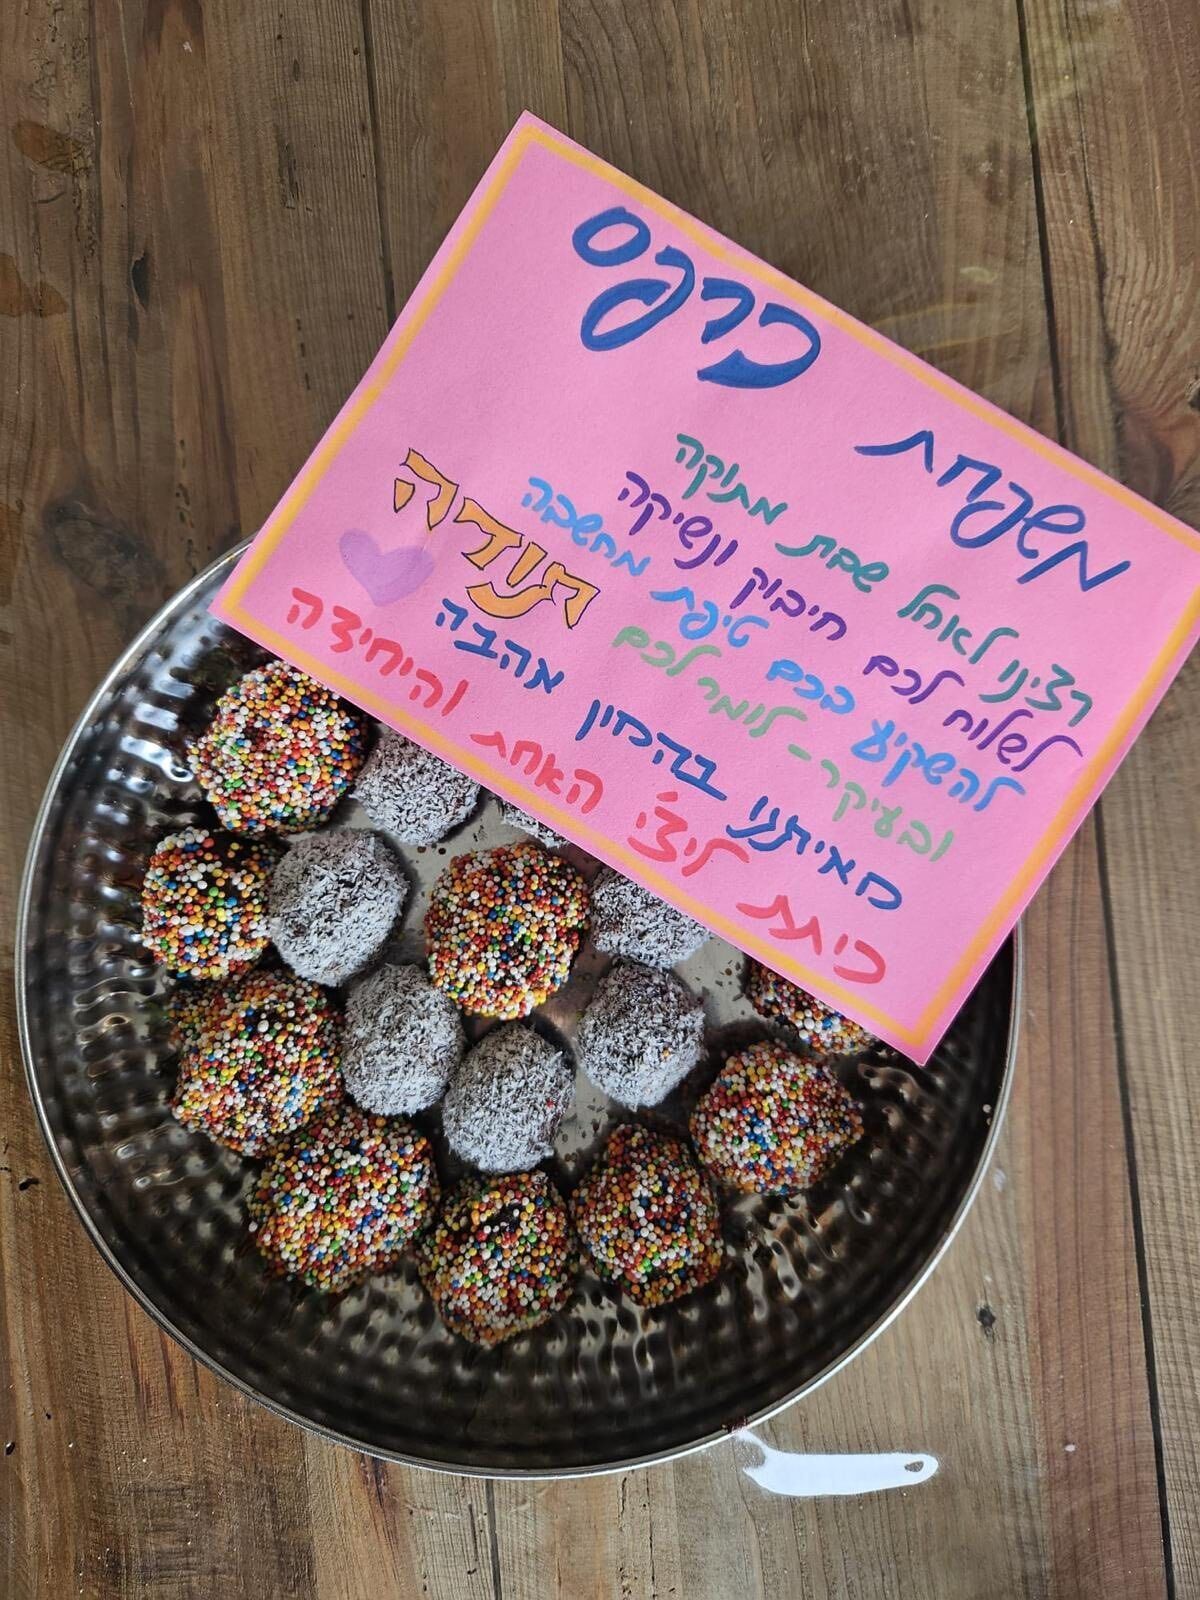 משפחת
כרפס
רצינו לאחל שבת מתוקה
לשלוח לכם חיבוק ונשיקה
להשקיע בכם טיפת מחשבה
ובעיקר - לומר לכם תודה
מאיתנו בהמון אהבה
כיתת ליצ'י האחת והיחידה